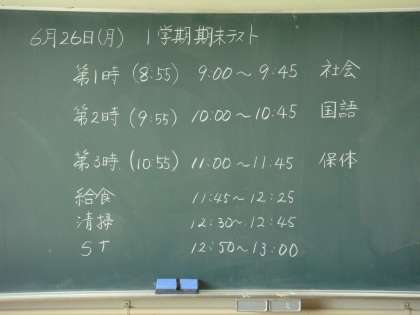 6月26日(月) 1学期期末テスト
第1時 (8:55) 9:00～9:45 社会
第2時 (9:55) 10:00～10:45 国語
第3時 (10:55) 11:00～11:45 保体
給食 11:45～12:25
清掃 12:30～12:45
ST 12:50～13:00